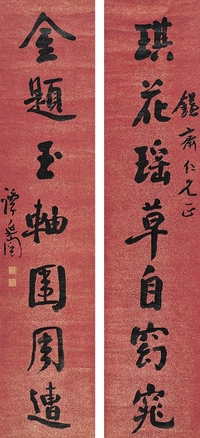 琪花瑤草自窈窕
齋仁兄正
金題玉軸圍周遭
譚延闓